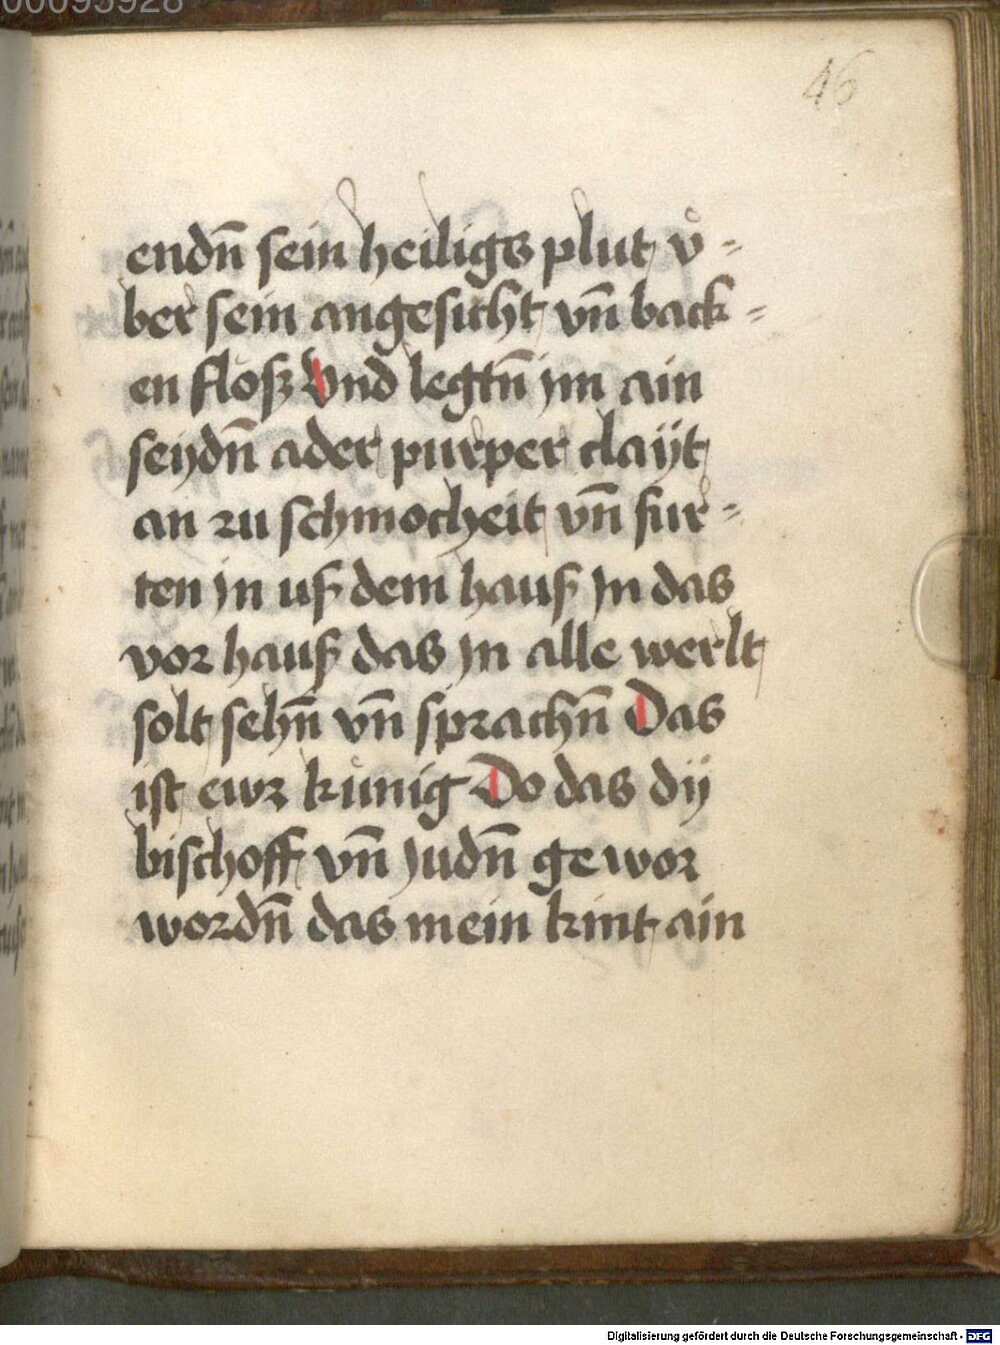 00095928
46
endn̄ sein heiligs plut vͦ=
ber sein angesicht vn̄ back=
en floß Vnd legtn̄ im ain
seydn̄ ader purper claÿt
an zu schmocheit vn̄ fur=
ten in uß dem hauß In das
vor hauß das In alle werlt
solt sehn̄ vn̄ sprachn̄ Das
ist ewr kuͦnig Do das dÿ
bischoff vn̄ Judn̄ gewor
wordn̄ das mein kint ain
Digitalisierung gefördert durch die Deutsche Forschungsgemeinschaft - DFG